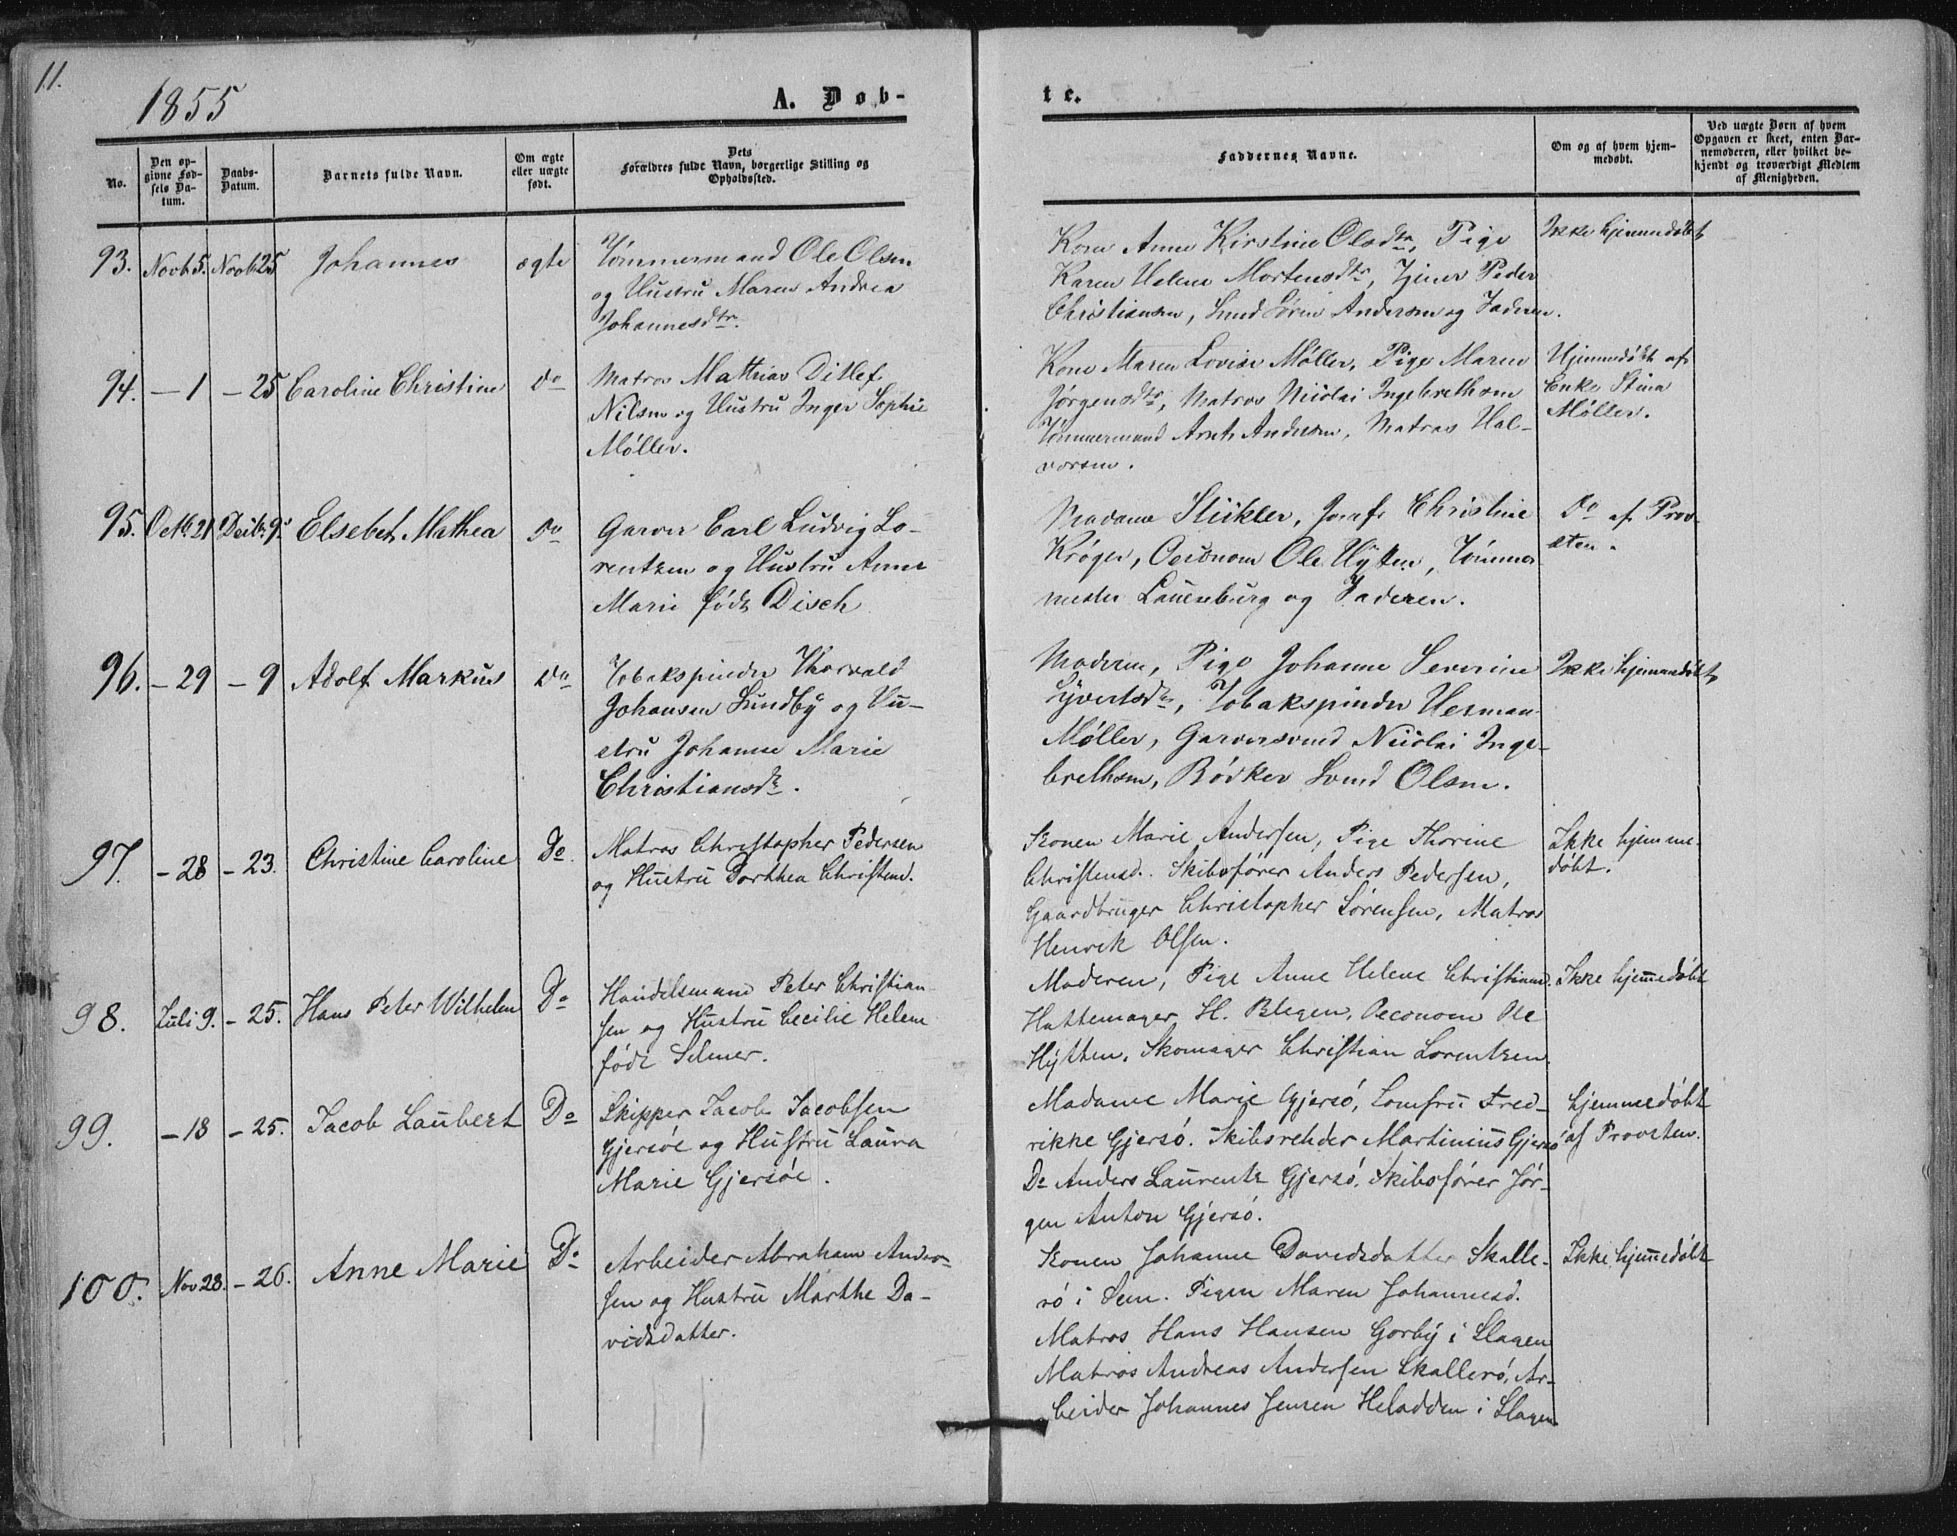 11.
1855
A. Døb-
te.
No.
Den op-
givne Fød-
sels Da-
tum.
Daabs-
Datum.
Barnets fulde Navn.
Om ægte
eller uægte
født.
Dets
Forældres fulde Navn, borgerlige Stilling og
Opholdssted.
Faddernes Navne.
Om og af hvem hjem-
medøbt.
Ved uægte Børn af hvem
Opgaven er skeet, enten Bar-
nemoderen, eller hvilket be-
kjendt og troværdigt Medlem
af Menigheden.
93. Novb 5. Novb 25 Johannes ægte
Tømmermand Ole Olsen
og Hustru Maren Andrea
Johannesdtr.
Kone Anne Kirstine Olsdtr, Pige
Karen Helene Mortensdtr, Tjener Peder
Christiansen, Smed Sörin Andersen og Faderen.
Ikke hjemmedøbt
94. - 1 - 25 Caroline Christine do
Matros Mathias Ditlef
Nilsen og Hustru Inger Sophie
Møller.
Kone Maren Lovise Møller, Pige Maren
Jørgensdtr, Matros Nicolai Ingebrethsen
Tömmermand Arnts Andersen, Matros Hal-
vorsen.
Hjemmedøbt af
Enke Stina
Møller.
95. Octb. 21 Decbr. 9. Elsebet Mathea do
Garver Carl Ludvig Lo-
rentzen og Hustru Anne
Marie født Disch
Madame Stickler, Jomfr Christine
Krøger, Oeconom Ole Hytten, Tömmer
mester Lauenburg og Faderen.
Do af Prov-
sten.
96. - 29 - 9 Adolf Markus do
Tobakspinder Thorvald
Johansen Sundby og Hu-
stru Johanne Marie
Christiansdtr.
Moderen, Pige Johanne Severine
Syvertsdtr, Tobakspinder Herman
Møller, Garversvend Nicolai Inge-
brethsen, Bödker Svend Olsen.
Ikke hjemmedøbt
97. - 28 - 23. Christine Caroline Do.
Matros Christopher Pedersen
og Hustru Dorthea Christensd.
Konen Marie Andersen, Pige Thorine
Christensd. Skibsfører Anders Pedersen,
Gaardbruger Christopher Sörensen, Matros
Henrik Olsen.
Ikke hjemme-
døbt.
98. Juli 9. - 25. Hans Peter Wilhelm Do
Handelsmann Peter Christian-
sen og Hustru Cecilie Helene
født Selmer.
Moderen, Pige Anne Helene Christiansd.
Hattemager H. Blegen, Oeconom Ole
Hÿtten, Skomager Christian Lorentzen.
Ikke hjemedöbt
99. - 18 - 25. Jacob Laubert Do
Skipper Jacob Jacobsen
Gjersöe og Hustru Laura
Marie Gjersöe.
Madame Marie Gjersö, Jomfru Fred-
rikke Gjersö. Skibsrehder Martinius Gjersö
Do Anders Laurentz Gjersö, Skibsfører Jör-
gen Anton Gjersö.
hjemmedöbt
af Provsten.
100. Nov 28. - 26. Anne Marie Do
Arbeider Abraham Ander-
sen og Hustru Marthe Da-
vidsdatter.
Konen Johanne Davidsdatter Skalle-
rö i Sem. Pigen Maren Johannesd.
Matros Hans Hansen Gorbÿ i Slagen
Matros Andreas Andersen Skallerö, Ar-
beider Johannes Jensen Heladden i Slagen
Ikke hjemedöbt